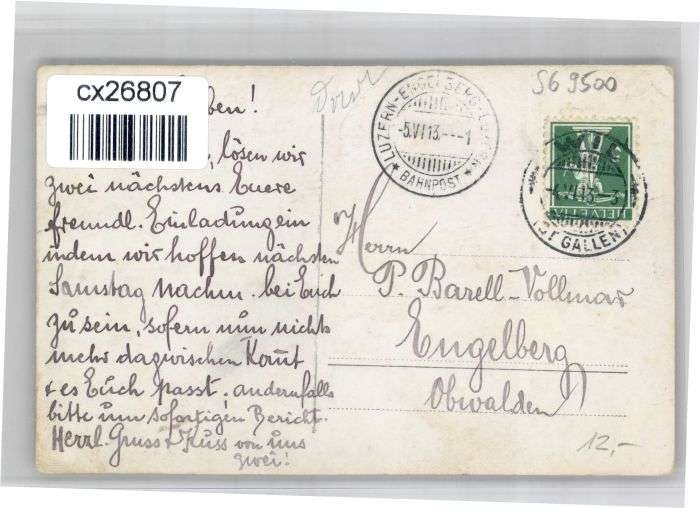 cx26807
ben!
, lösen wir
zwei nächstens Euere
freundl. Einladung ein
indem wir hoffen nächsten
Samstag nachm. bei Euch
zu sein, sofern nun nichts
mehr dazwischen komt
& es Euch passt; andernfalls
bitte um sofortigen Bericht.
Herzl. Gruss & Kuss von uns
zwei!
LUZERN-ENGELBERG-LUZERN
-5.VI.13.--1
BAHNPOST
S6 9500
HELVETIA
WIL
-4.VI.13-3
(ST GALLEN)
Herrn
P. Barell-Vollmar
Engelberg
Obwalden
12,-